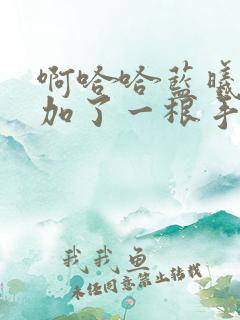 啊哈哈蓝曦
加了一根手
我我鱼
未经同意禁止转载